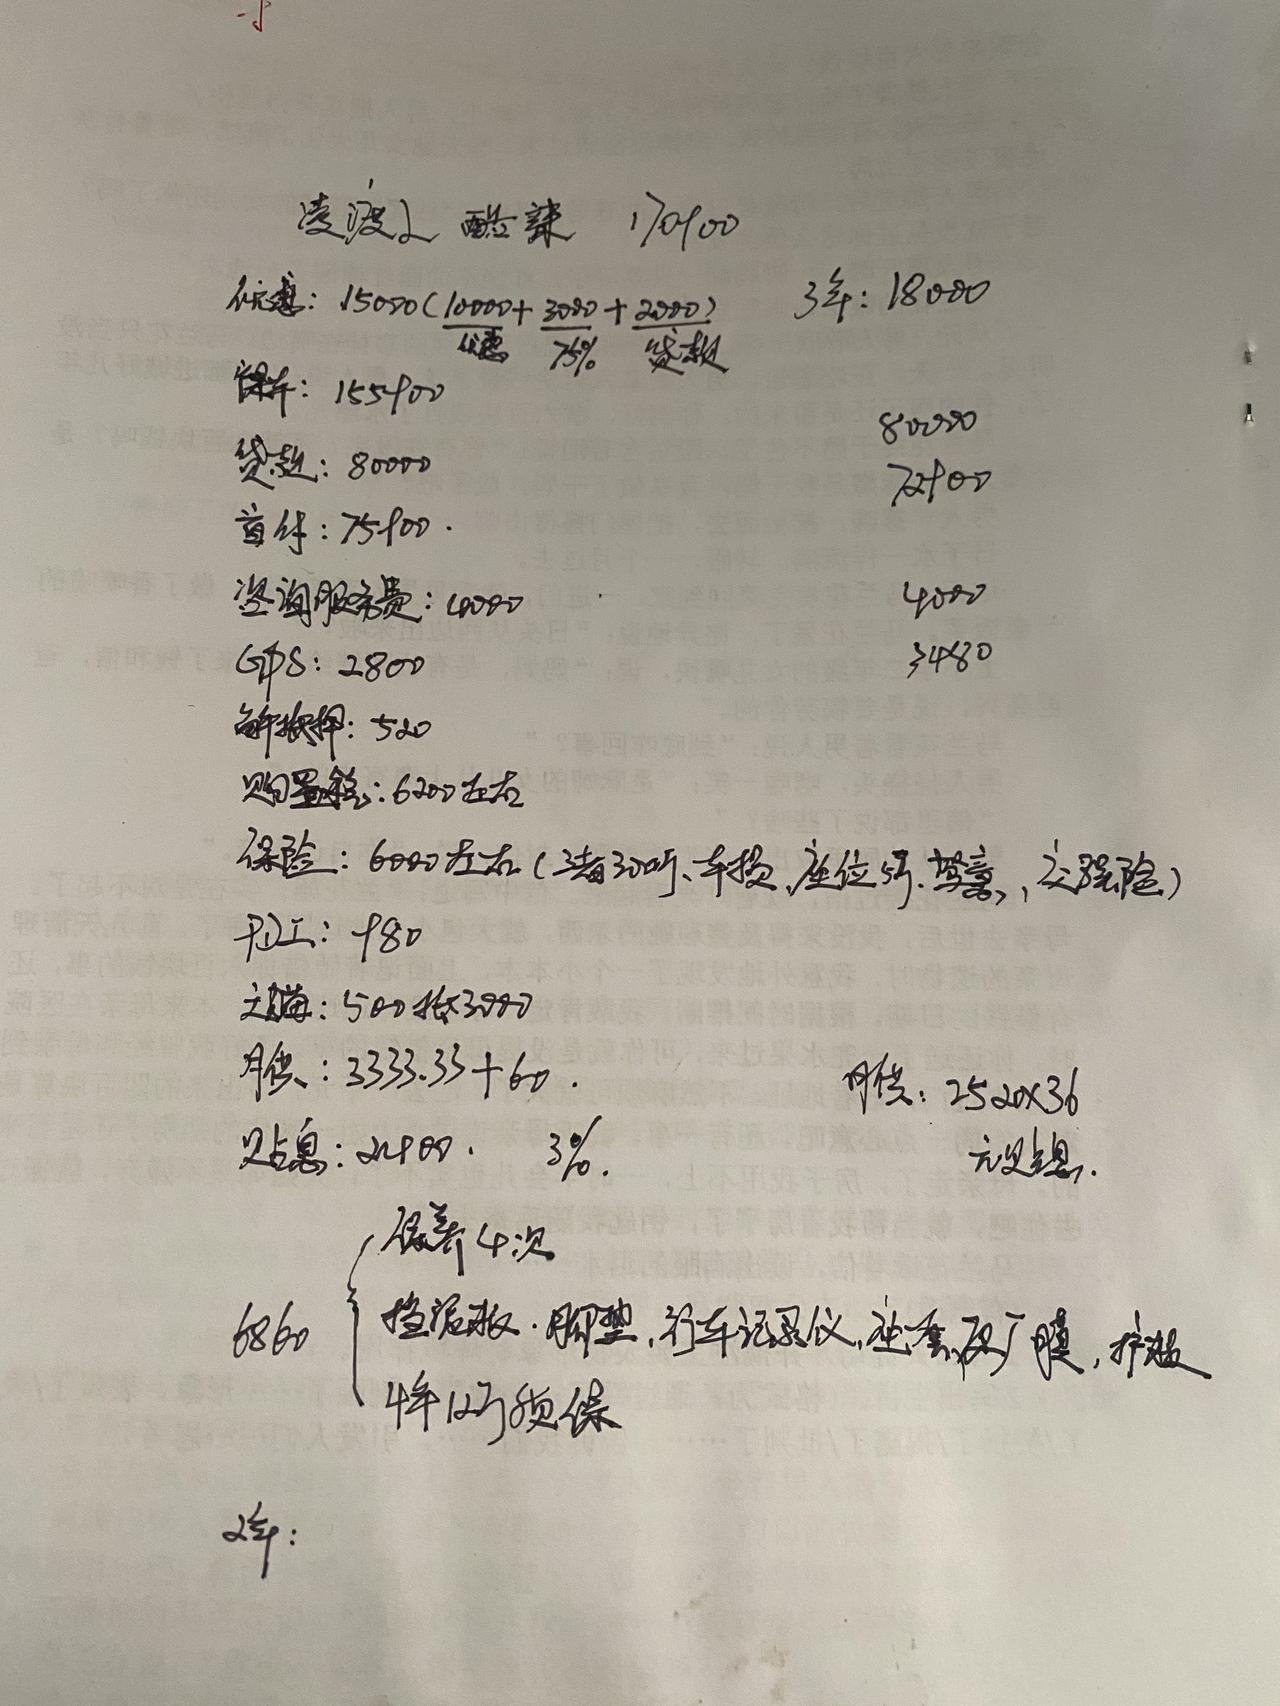 凌渡L 酷辣 170900
优惠：15000（10000+3000+2000） 3年：18000
优惠 75% 贷款
裸车：155900
80000
贷款：80000
72900
首付：75900.
咨询服务费：4000 4000
GPS：2800 3480
解抵押：520
购置税：6200左右
保险：6000左右（三者300万、车损、座位5万、驾意，交强险）
打工：980
太膜：500抵3000
月供：3333.33+60. 月供：2520×36
贴息：2400. 3%. 无贴息.
保养4次
6860 挡泥板.脚垫，行车记录仪，座套，原厂膜，护板
4年12万质保
2年：